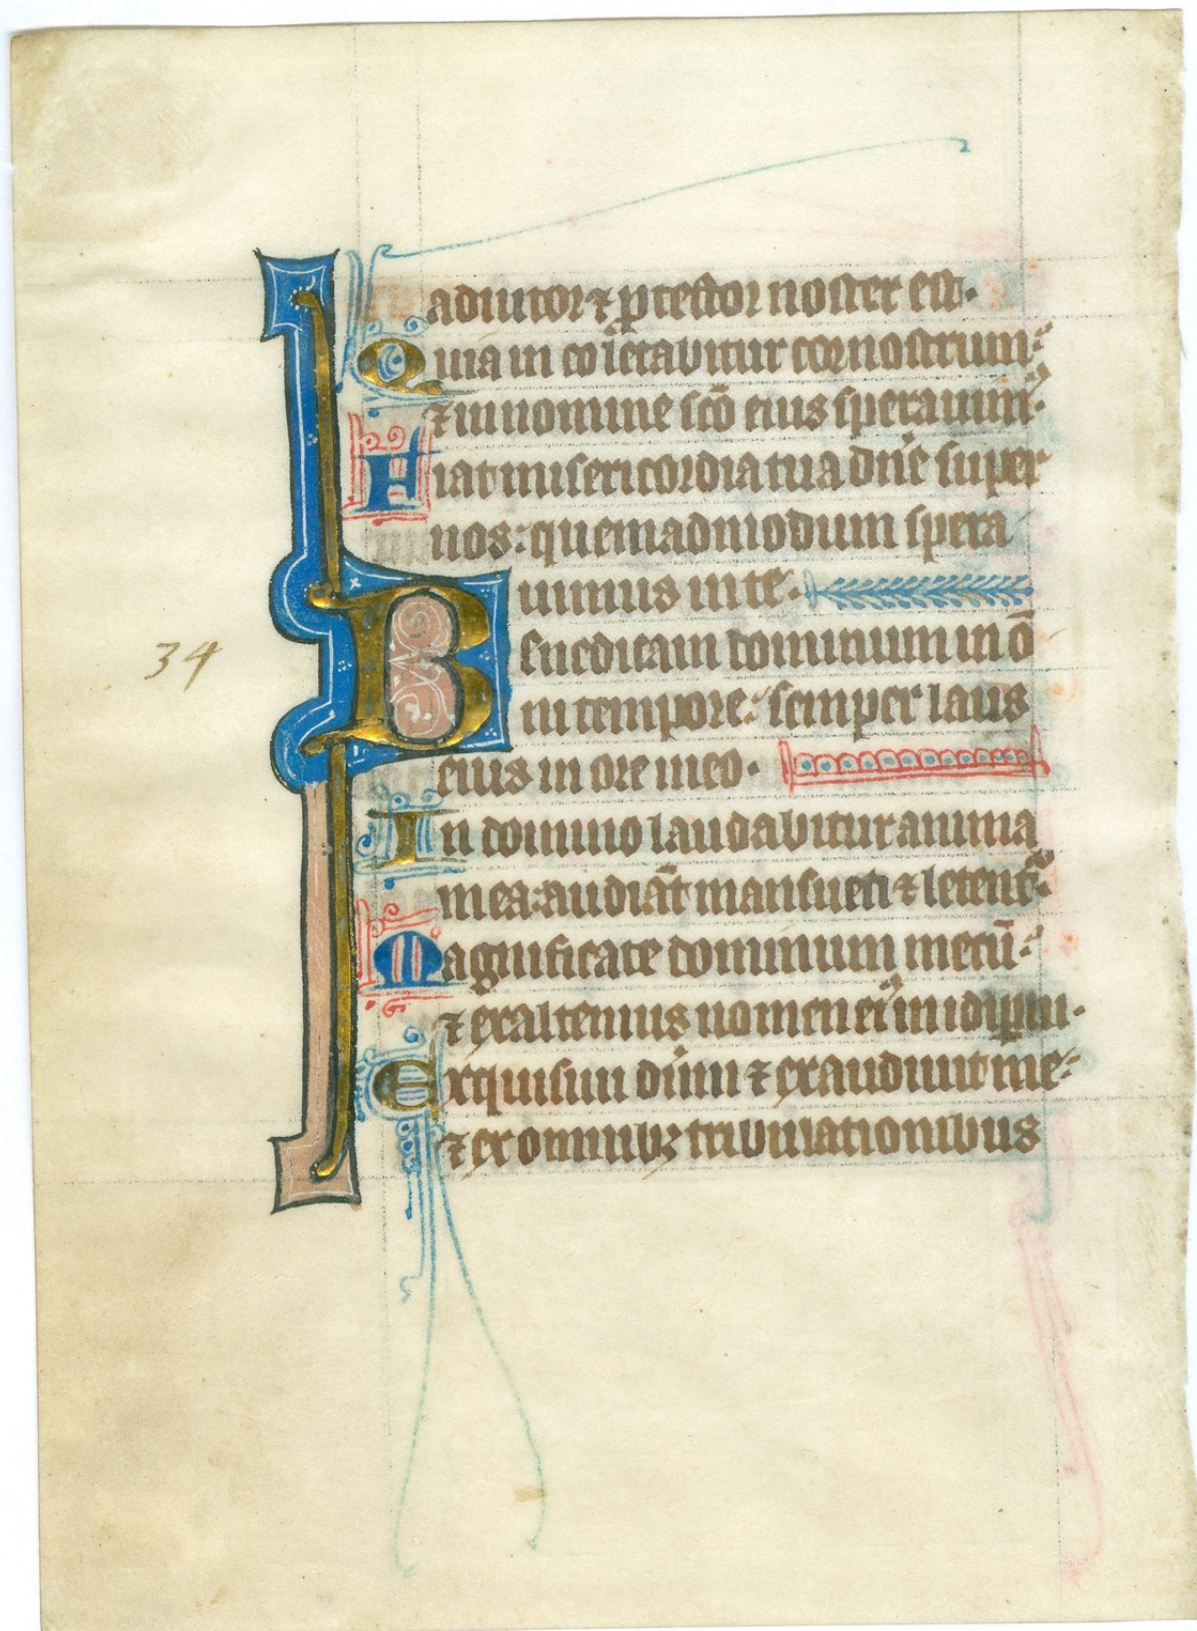 adiutor ⁊ ꝓtector noster est.
Quia in eo letabitur cor nostrum:
⁊ in nomine sc̄o eius sperauim⁹.
Fiat misericordia tua dn̄e super
nos: quemadmodum spera
uimus in te.
34
Benedicam dominum in ō
ni tempore: semper laus
eius in ore meo.
In domino laudabitur anima
mea: audiāt mansueti ⁊ letent᷑.
Magnificate dominum mecū:
⁊ exaltemus nomen ei⁹ in idip̄m.
Exquisiui dn̄m ⁊ exaudiuit me:
⁊ ex omnibꝫ tribulationibus